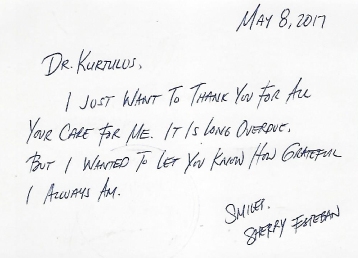 MAY 8, 2017
DR. KURTULUS,
I JUST WANT TO THANK YOU FOR ALL
YOUR CARE FOR ME. IT IS LONG OVERDUE.
BUT I WANTED TO LET YOU KNOW HOW GRATEFUL
I ALWAYS AM.
SMILES.
SHERRY ESTEBAN